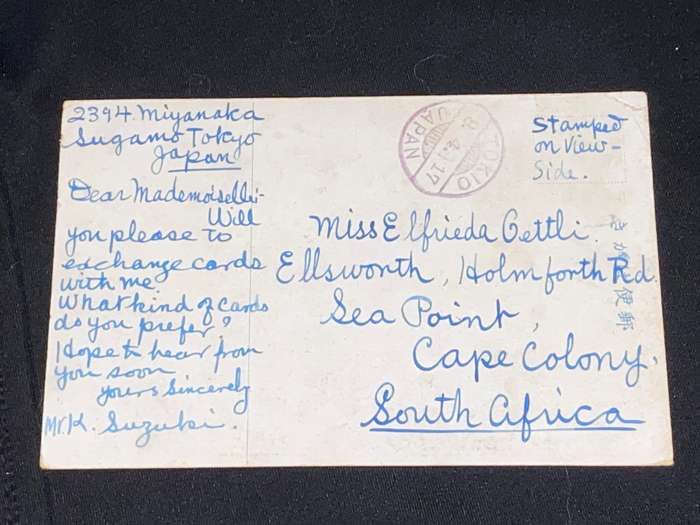 2394. Miyanaka
Sugamo Tokyo
Japan
Dear Mademoiselle:-
Will
you please to
exchange cards
with me.
What kind of cards
do you prefer?
Hope to hear from
you soon
yours Sincerely
Mr. K. Suzuki.
TOKIO
JAPAN
Stamped
on View-
Side.
Miss Elfrieda Oettli
Ellsworth, Holmforth Rd.
Sea Point,
Cape Colony.
South Africa